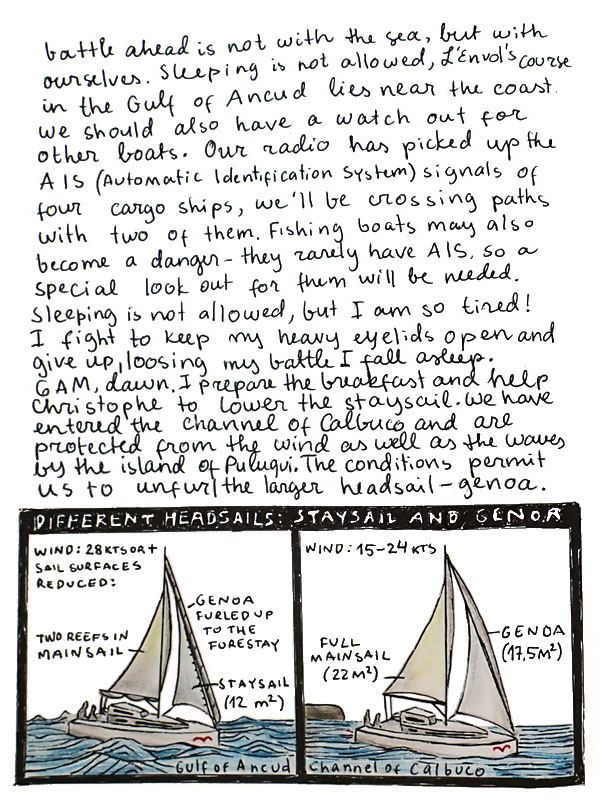 battle ahead is not with the sea, but with
ourselves. Sleeping is not allowed, L'Envol's course
in the Gulf of Ancud lies near the coast.
We should also have a watch out for
other boats. Our radio has picked up the
AIS (Automatic Identification System) signals of
four cargo ships, we'll be crossing paths
with two of them. Fishing boats may also
become a danger - they rarely have AIS, so a
special look out for them will be needed.
Sleeping is not allowed, but I am so tired!
I fight to keep my heavy eyelids open and
give up, loosing my battle I fall asleep.
6 AM, dawn. I prepare the breakfast and help
Christophe to lower the staysail. We have
entered the channel of Calbuco and are
protected from the wind as well as the waves
by the island of Puluqui. The conditions permit
us to unfurl the larger headsail - genoa.
DIFFERENT HEADSAILS: STAYSAIL AND GENOA
WIND: 28 KTS OR +
SAIL SURFACES
REDUCED:
GENOA
FURLED UP
TO THE
FORESTAY
TWO REEFS IN
MAINSAIL
STAYSAIL
(12 m²)
Gulf of Ancud
WIND: 15-24 KTS
GENOA
(17,5M²)
FULL
MAINSAIL
(22M²)
Channel of Calbuco